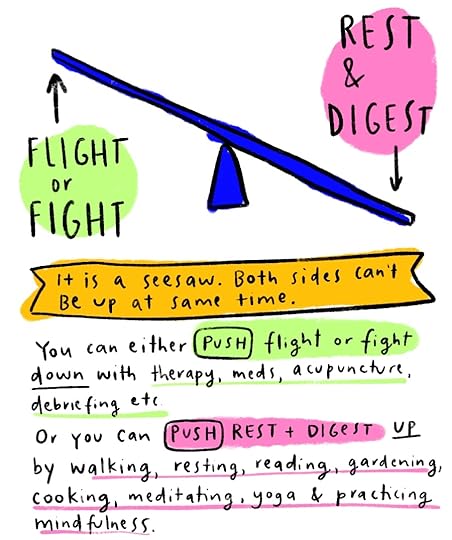 REST
&
DIGEST
FLIGHT
or
FIGHT
It is a seesaw. Both sides can't
Be up at same time.
You can either PUSH flight or fight
down with therapy, meds, acupuncture,
debriefing etc
Or you can PUSH REST + DIGEST UP
by walking, resting, reading, gardening,
cooking, meditating, yoga & practicing
mindfulness.